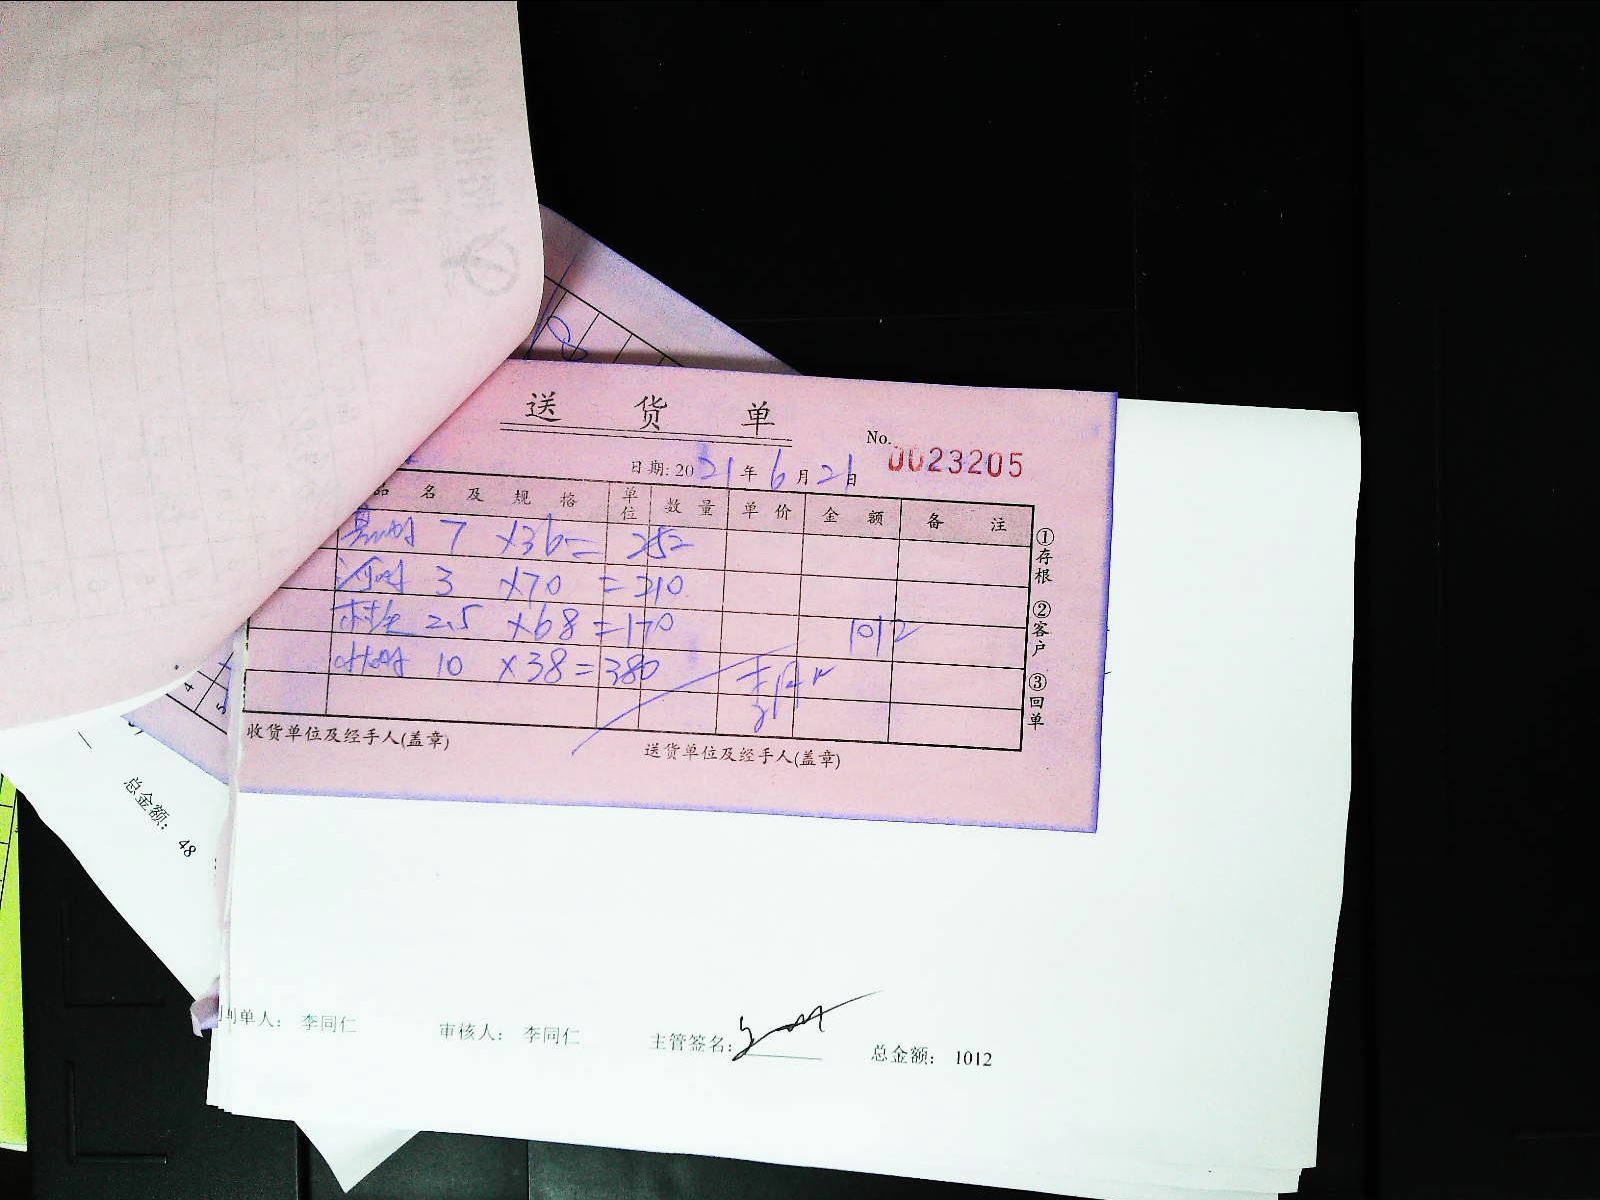 送 货 单
No. 0023205
日期: 2021年6月21日
品 名 及 规 格 单位 数 量 单 价 金 额 备 注
7 ×36= 252
3 ×70 =210
2.5 ×68 =170
1012
10 ×38=380
①存根 ②客户 ③回单
收货单位及经手人(盖章)
送货单位及经手人(盖章)
4
5
总金额: 48
制单人: 李同仁 审核人: 李同仁 主管签名: 总金额: 1012